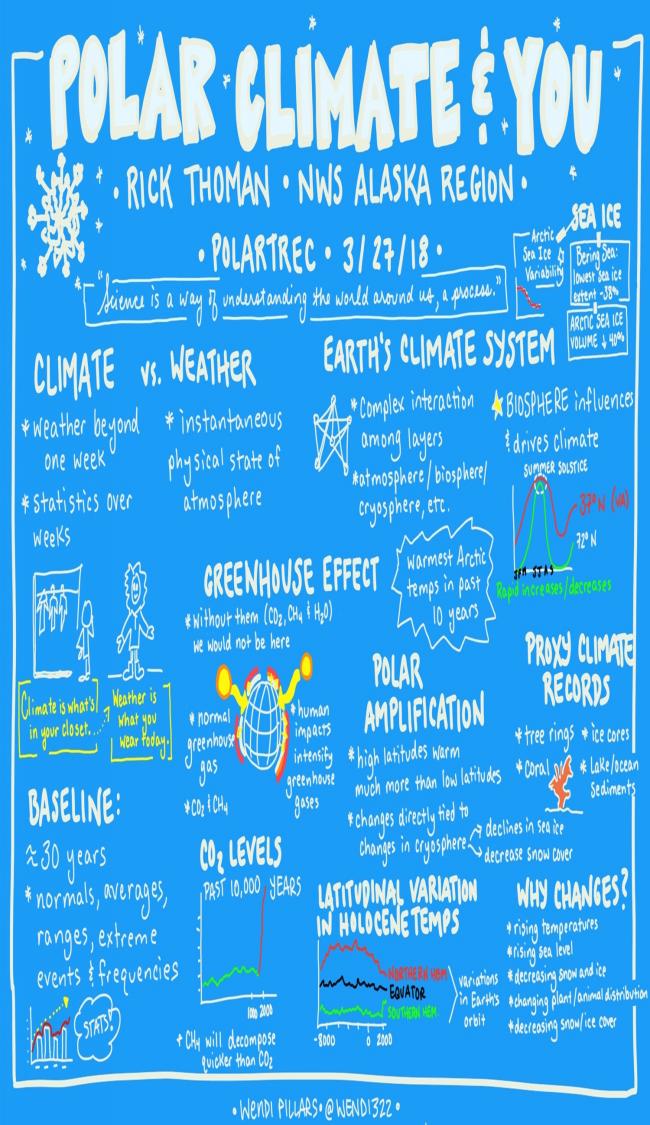 POLAR CLIMATE & YOU
• RICK THOMAN • NWS ALASKA REGION •
• POLARTREC • 3/27/18 •
"Science is a way of understanding the world around us, a process."
SEA ICE
Arctic
Sea Ice
Variability
Bering Sea:
lowest sea ice
extent -38%
ARCTIC SEA ICE
VOLUME ↓ 40%
CLIMATE vs. WEATHER
* Weather beyond
one week
* statistics over
weeks
* instantaneous
physical state of
atmosphere
Climate is what's
in your closet....
Weather is
what you
wear today.
EARTH'S CLIMATE SYSTEM
* Complex interaction
among layers
* atmosphere/biosphere/
cryosphere, etc.
BIOSPHERE influences
& drives climate
SUMMER SOLSTICE
37° N (VA)
72° N
JFM JJAS
Rapid increases/decreases
Warmest Arctic
temps in past
10 years
GREENHOUSE EFFECT
* Without them (CO2, CH4 & H2O)
we would not be here
* normal
greenhouse
gas
* CO2 & CH4
* human
impacts
intensify
greenhouse
gases
POLAR
AMPLIFICATION
* high latitudes warm
much more than low latitudes
* changes directly tied to
changes in cryosphere
declines in sea ice
decrease snow cover
PROXY CLIMATE
RECORDS
* tree rings * ice cores
* Coral * Lake/ocean
Sediments
BASELINE:
≈ 30 years
* normals, averages,
ranges, extreme
events & frequencies
STATS!
CO2 LEVELS
PAST 10,000 YEARS
1000 2000
* CH4 will decompose
quicker than CO2
LATITUDINAL VARIATION
IN HOLOCENE TEMPS
NORTHERN HEM.
EQUATOR
SOUTHERN HEM.
-8000 0 2000
variations
in Earth's
orbit
WHY CHANGES?
* rising temperatures
* rising sea level
* decreasing snow and ice
* changing plant/animal distribution
* decreasing snow/ice cover
• WENDI PILLARS • @WENDI322 •